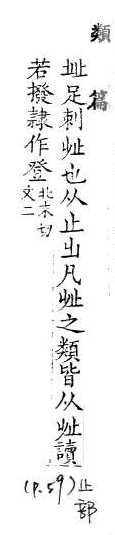 類篇
𣥠足刺𣥠也从止出凡𣥠之類皆从𣥠讀
若撥隸作登北末切
文二
(p.59)止部